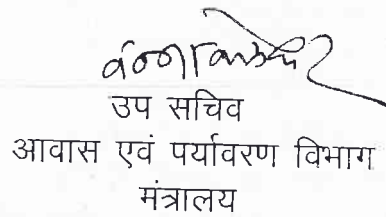 उप सचिव
आवास एवं पर्यावरण विभाग
मंत्रालय